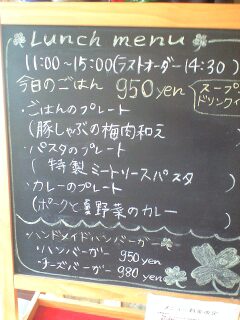 Lunch menu
11:00~15:00(ラストオーダー14:30)
今日のごはん 950yen
スープ
ドリンク
・ごはんのプレート
(豚しゃぶの梅肉和え
・パスタのプレート
(特製ミートソースパスタ)
・カレーのプレート
(ポークと夏野菜のカレー)
ハンドメイドハンバーガー
・ハンバーガー 950yen
・チーズバーガー 980yen